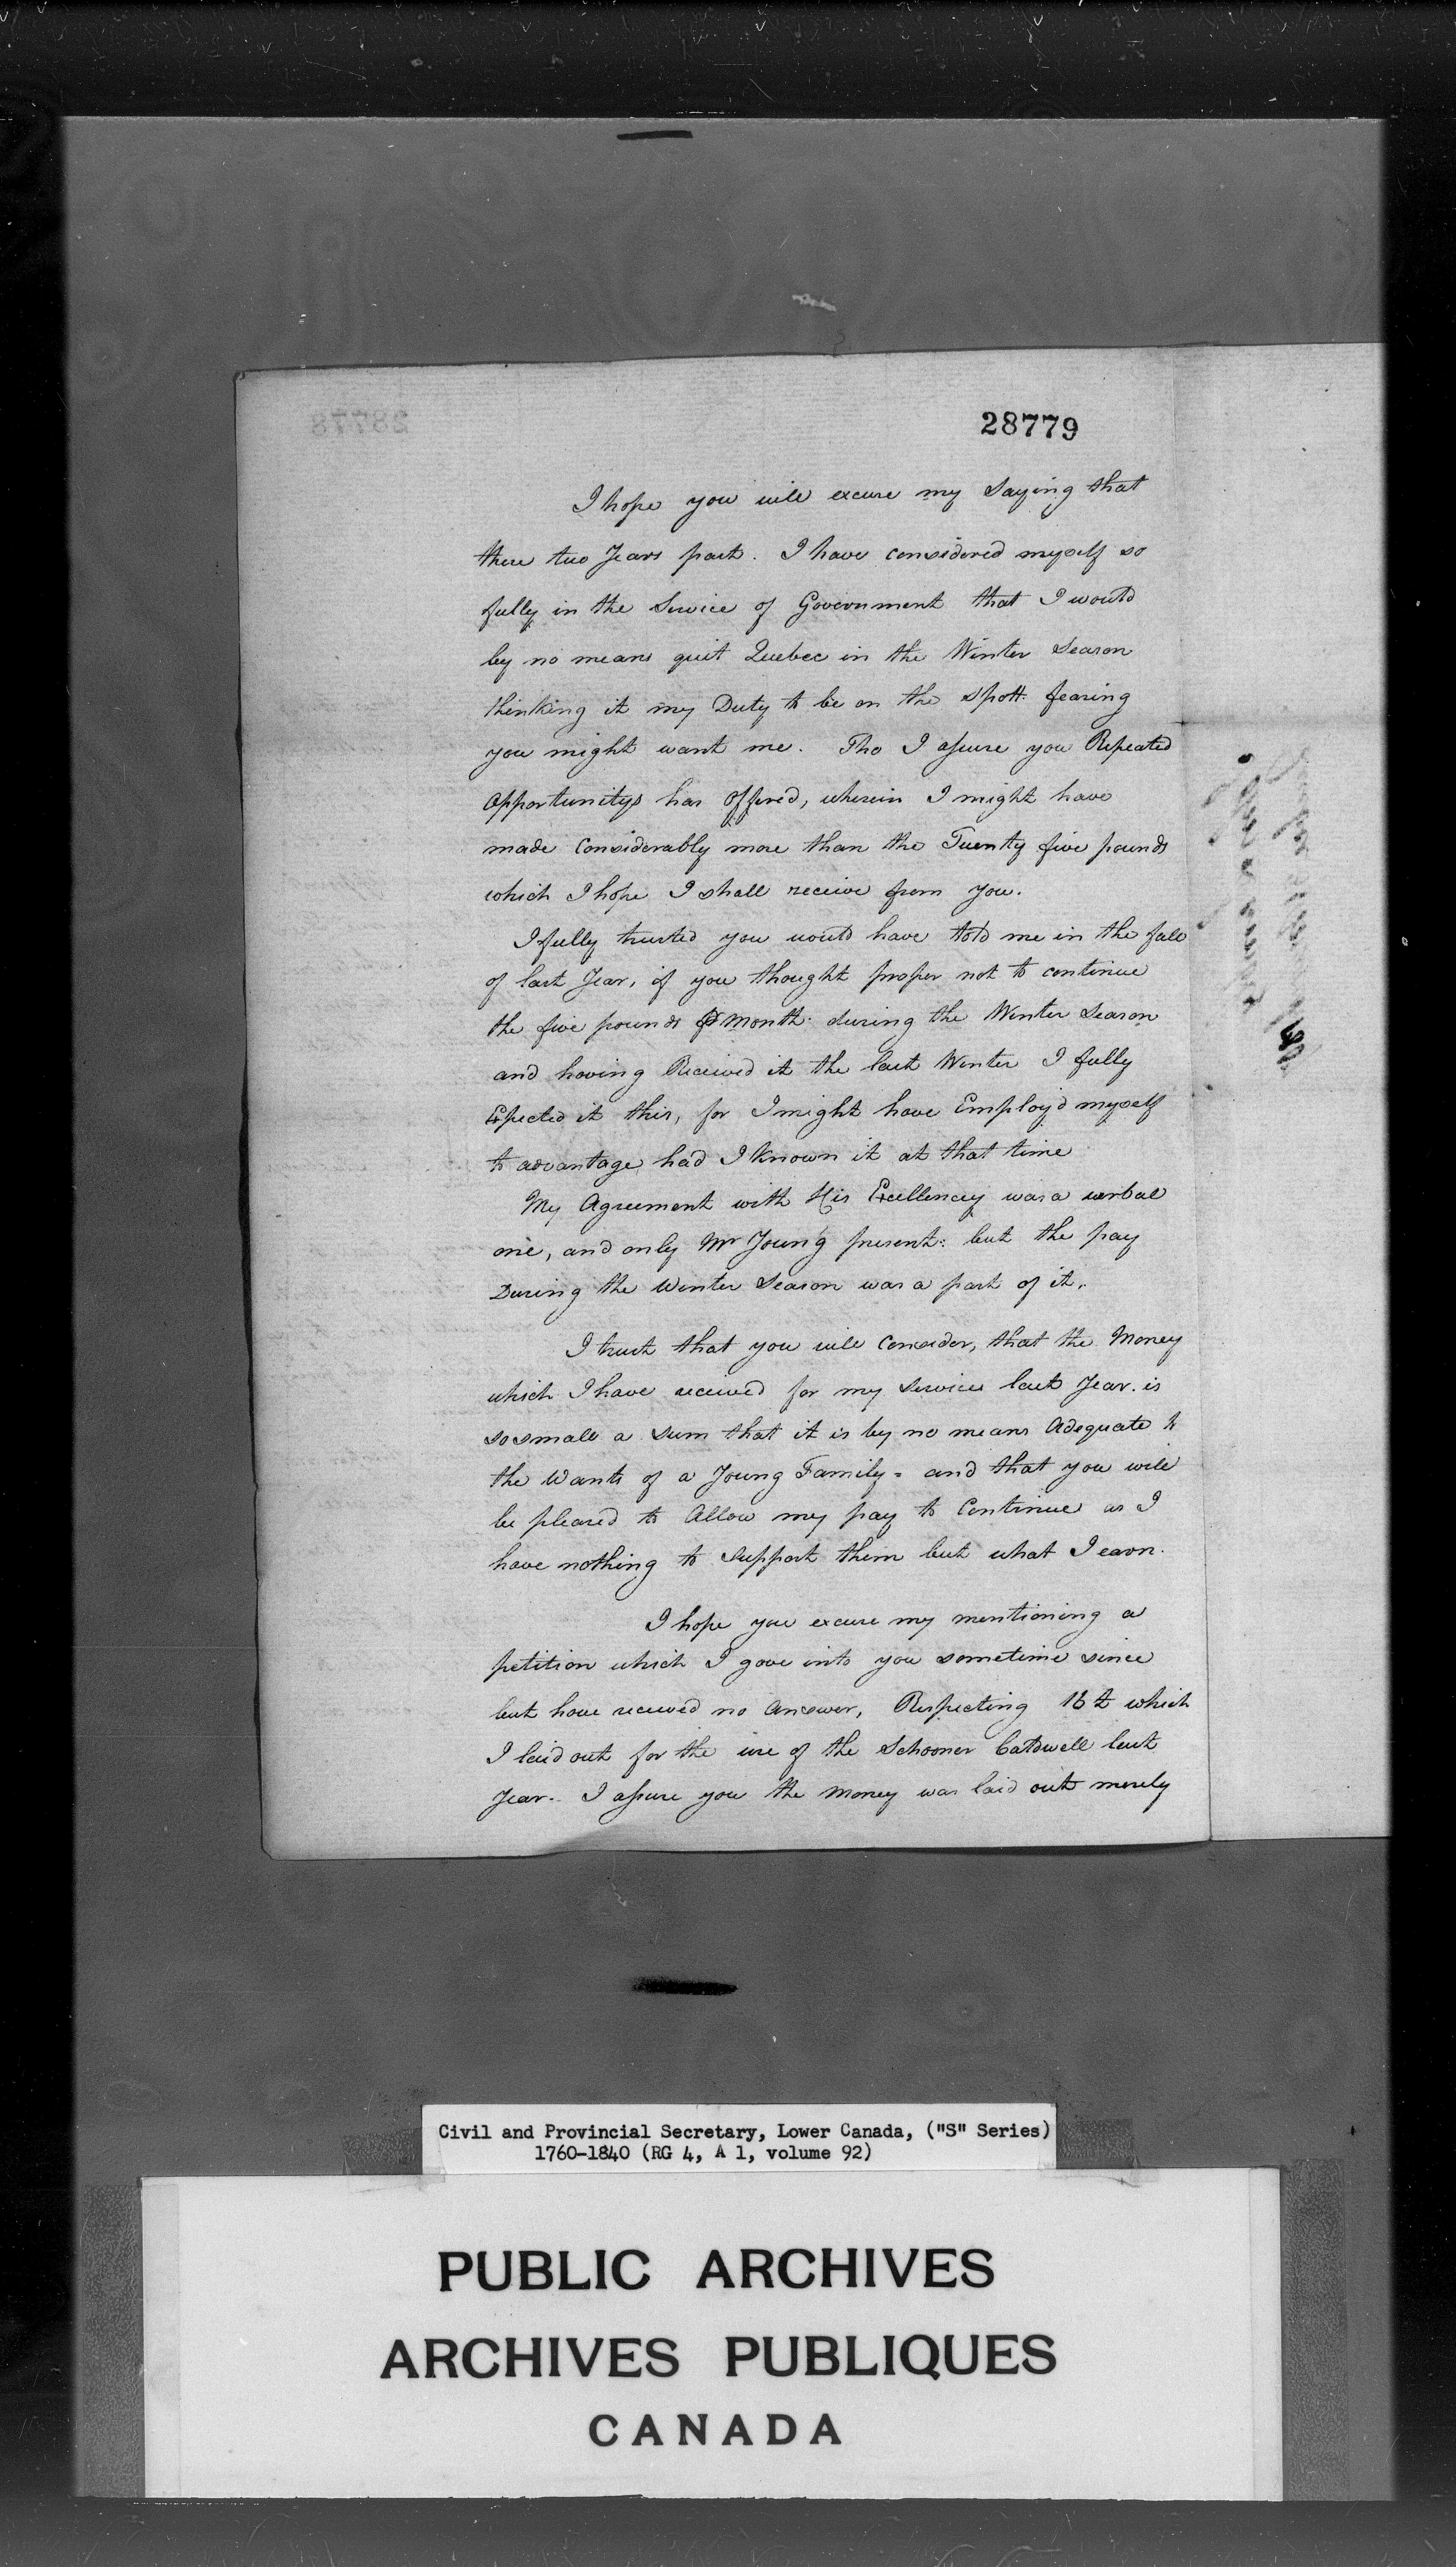 28779
I hope you will excuse my Saying that
these two Years past. I have considered myself so
fully in the Service of Government that I would
by no means quit Quebec in the Winter Season
thinking it my Duty to be on the Spott. fearing
you might want me. Tho I assure you Repeated
Opportunitys has offered, wherein I might have
made Considerably more than the Twenty five pounds
which I hope I shall receive from you.
I fully trusted you would have told me in the fall
of last Year, if you thought proper not to continue
the five pounds ⅌ Month. during the Winter Season
and having Received it the last Winter I fully
Expected it this, for I might have Employ'd myself
to advantage had I Known it at that time
My Agreement with His Excellency was a verbal
one, and only Mr Young present: but the pay
During the Winter Season was a part of it.
I trust that you will Consider, that the Money
which I have received for my Services last Year. is
so small a Sum that it is by no means Adequate to
the Wants of a Young Family - and that you will
be pleased to Allow my pay to Continue as I
have nothing to Support them but what I earn.
I hope you excuse my mentioning a
petition which I gave into you sometime since
but have received no Answer, Respecting which
I laid out for the use of the Schooner Caldwell last
Year. I assure you the Money was laid out merely
Civil and Provincial Secretary, Lower Canada, ("S" Series)
1760-1840 (RG 4, A 1, volume 92)
PUBLIC ARCHIVES
ARCHIVES PUBLIQUES
CANADA